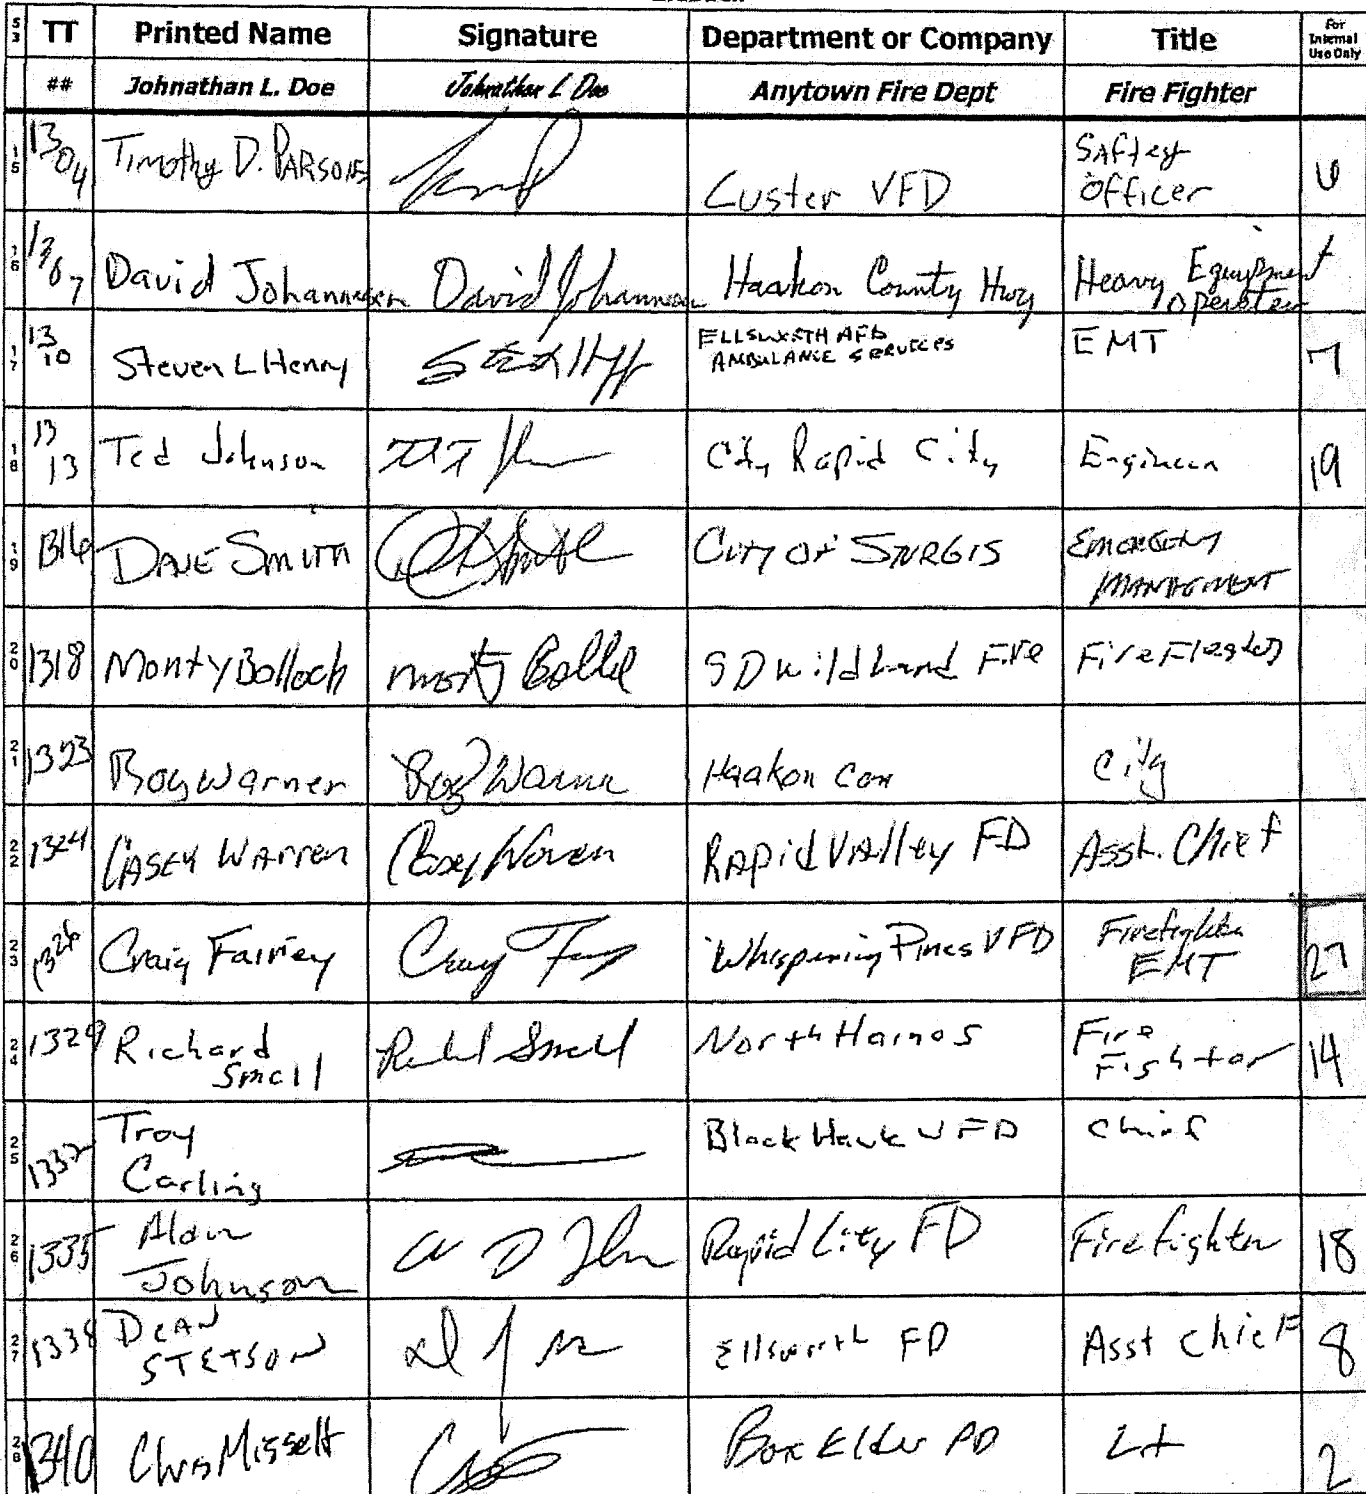 53 TT Printed Name Signature Department or Company Title For Internal Use Only
## Johnathan L. Doe Johnathan L Doe Anytown Fire Dept Fire Fighter
15 1304 Timothy D. PARSONS Custer VFD SAftey Officer 6
16 1307 David Johannesen David Johannesen Haakon County Hwy Heavy Equipment Operator
17 1310 Steven L Henry ELLSWORTH AFB AMBULANCE SERVICES EMT 7
18 1313 Ted Johnson City Rapid City Engineer 19
19 1316 DAVE SMITH CITY OF STURGIS EMERGENCY MANAGEMENT
20 1318 Monty Bolloch SD Wildland Fire
21 1323 Roy Warner Roy Warner Haakon City
22 1324 CASEY WARREN Casey Warren RApid VAlley FD Asst. Chief
23 1326 Craig Fairley Craig Whispering Pines VFD Firefighter EMT 27
24 1329 Richard Small Small North Haines Fire Fighter 14
25 1332 Troy Carling Black Hawk VFD Chief
26 1335 Alan Johnson Rapid City FD Firefighter 18
27 1338 DEAN STETSON Ellsworth FD Asst Chief 8
28 1340 Chris Misselt Box Elder PD Lt 2